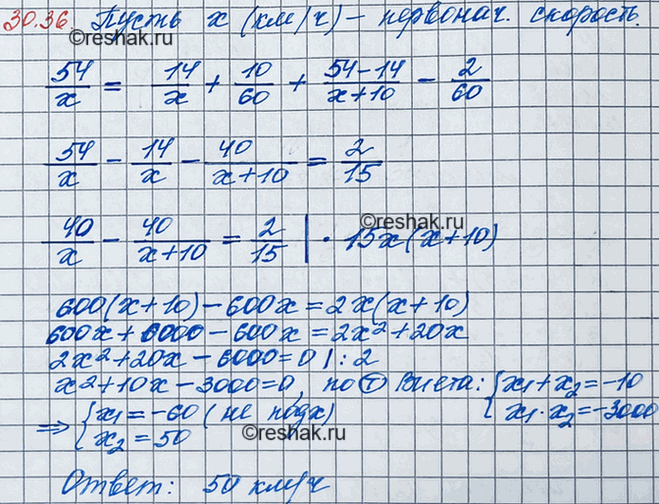 30.36 Пусть x (км/ч) – первонач. скорость.
©reshak.ru
54/x = 14/x + 10/60 + (54-14)/(x+10) - 2/60
54/x - 14/x - 40/(x+10) = 2/15
©reshak.ru
40/x - 40/(x+10) = 2/15 | · 15x(x+10)
600(x+10) - 600x = 2x(x+10)
600x + 6000 - 600x = 2x² + 20x
2x² + 20x - 6000 = 0 | : 2
x² + 10x - 3000 = 0, по Т Виета: { x₁ + x₂ = -10
x₁ · x₂ = -3000
⇒ { x₁ = -60 (не подх)
x₂ = 50
©reshak.ru
Ответ: 50 км/ч